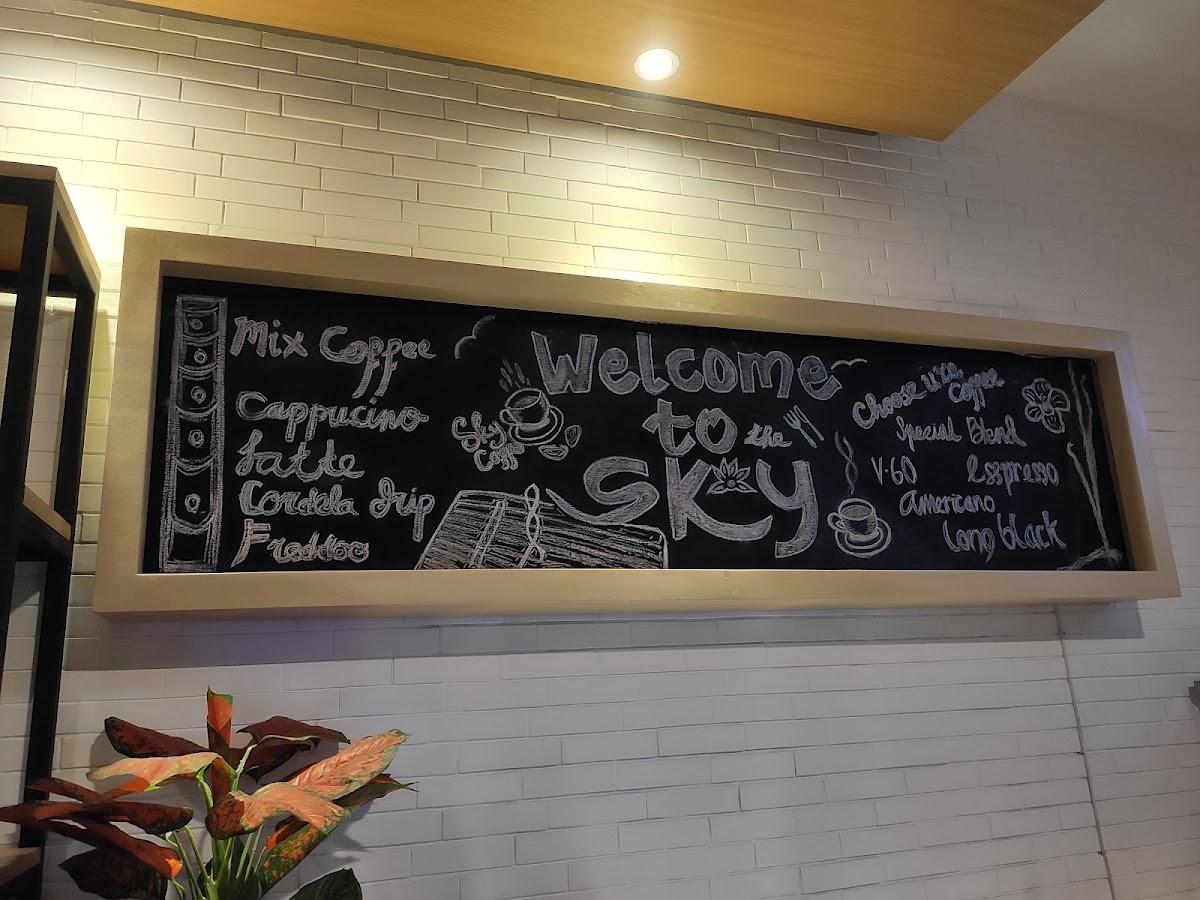 Mix Coffee
Cappucino
Latte
Cordela drip
Freddoo
Sky
Coff
Welcome
to the
SKy
Choose u're
Coffee
Special Blend
V-60 Esspresso
Americano
Long black